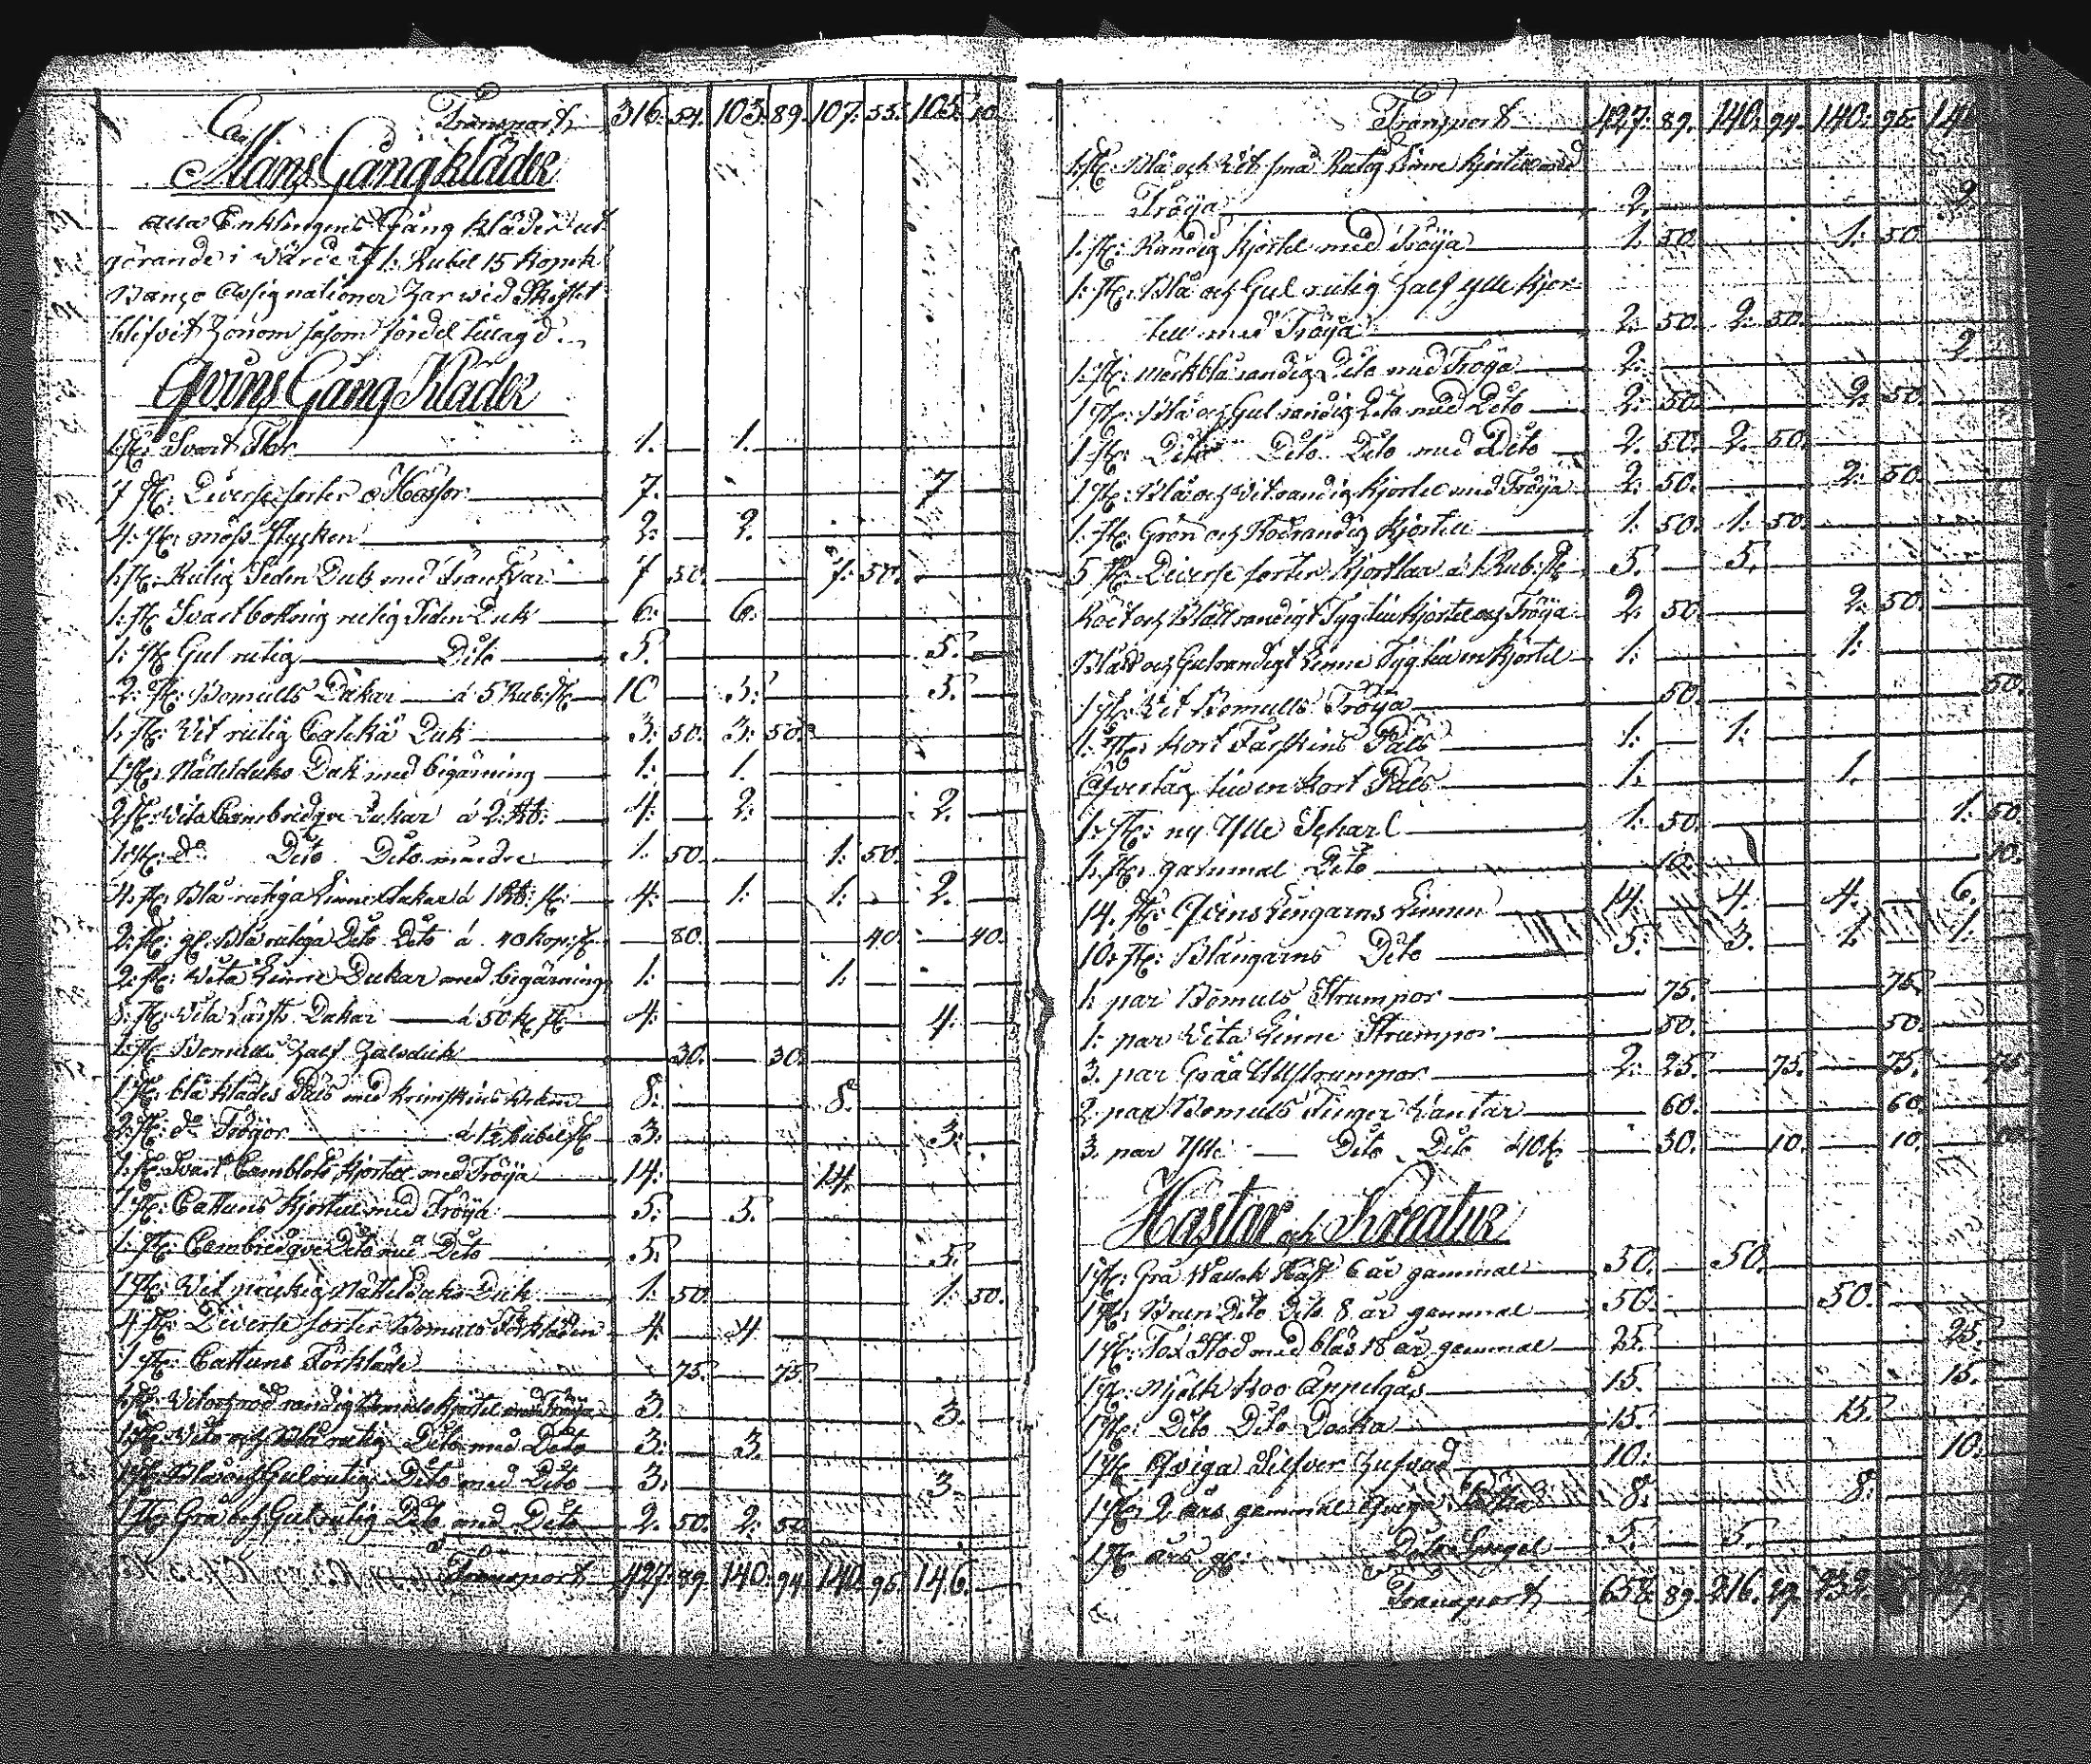 Transport 316. 54. 103. 89. 107. 55. 105. 10
Mans Gångkläder
alla Enklingens Gång kläder ut
görande i värde 1: Rubel 15 Kopek
Banco Assignationer har wid Skiftet
blifvit honom såsom fördel tillagd.
Qvins Gång Kläder
1 st: Svart Flor 1. 1.
7 st: Diverse sorter Mössor 7. 7
4: st: möss stycken 2: 2.
1: st: Rutig Siden Duk med Frans 7 50. 7: 50.
1: st Svartbottnig rutig Siden Duk 6: 6:
1: st Gul rutig Dito 5. 5.
2: st: Bomulls Dukar á 5 Rub: st 10 5: 5.
1: st: Vit rutig Duk 3: 50. 3: 50.
1 st: Nättelduks Duk med bigärning 1: 1.
2 st: Vita Cambridqve Dukar á 2: Rb: 4: 2: 2.
1: st: do Dito Dito mindre 1: 50. 1: 50.
4: st: Blå rutiga Linne Dukar á 1 Rb: st: 4: 1: 1: 2.
2: st: gl: Blå rutiga Dito Dito á 40 kop: st 80. 40. 40.
2: st: Vita Linne Dukar med bigärning 1: 1:
st: Vita Lärfts Dukar á 50 k st 4: 4.
1: st Bomulls half halsduk 30. 30.
1 st: blå klädes Päls med 8: 8.
2: st: do Tröjor á 1½ Rubel st 3: 3:
1: st: Svart Camblots kjortel med Tröya 14: 14.
1 st: Cattuns Kjortel med Tröya 5: 5.
1: st: Cambridqve Dito med Dito 5: 5.
1 st: Vit Nättelduks Duk 1: 50. 1: 50.
4 st: Diverse sorter Bomuls Förkläden 4: 4
1 st: Cattuns Förkläde 75. 75.
1 st: Vit och röd randig Bomuls kjortel med Tröya 3. 3.
1: st: Vit och Blå rutig Dito med Dito 3: 3.
1 st: Blå och Gul rutig Dito med Dito 3. 3.
1 st: Grå och Gul rutig Dito med Dito 2. 50. 2: 50
Transport 427: 89. 140: 94. 140: 95. 146.
Transport 427: 89. 140. 94. 140: 95: 146
1: st: Blå och Vit små Rutig Linne kjortel med
Tröija 2. 2.
1. st: Randig Kjortel med Tröija 1: 50. 1: 50.
1: st: Blå och Gul rutig half ylle kjor
tell med Tröija 2: 50. 2: 50.
1: st: mörkblå randig Dito med Tröya 2: 2
1 st: Blå och Gul randig Dito med Dito 2: 50. 2: 50.
1 st: Dito Dito Dito med Dito 2. 50. 2. 50.
1 st: Blå och Vit randig kjortel med Tröya 2: 50. 2: 50.
1: st: Grön och Röd randig kjortell 1: 50. 1: 50.
5 st: Diverse sorter Kjortlar á 1 Rub: st 5. 5.
Rödt och Blått randigt Tyg till kjortel och Tröya 2. 50. 2: 50.
Blått och Gul randigt Linne Tyg till en kjortel 1: 1:
1 st: Vit Bomulls Tröya 50. 50.
1: st: Kort Fårskins Päls 1: 1:
Öfvertåg till en kort Päls 1. 1.
1: st: ny Ylle Scharl 1: 50. 1: 50.
1: st: gammal Dito 10. 10.
14. st: Qvins Lingarns Linnen 14. 4. 4. 6.
10: st: Blångarns Dito 5: 3. 1. 1.
1: par Bomuls Strumpor 75. 75.
1: par Vita Linne Strumpor 50. 50.
3. par Gråa Ullstrumpor 2: 25. 75. 75. 75
2. par Bomuls Finger Vantar 60. 60.
3. par Ylle Dito Dito 10 k 30. 10. 10. 10
Hästar och Kreatur
1 st: Grå Vallak Häst 6 år gammal 50. 50.
1 st: Brun Dito Dito 8 år gammal 50. 50.
1 st: Fox Stod med bläs 18 år gammal 25. 25.
1 st: Mjölk Koo Äppelgås 15. 15.
1 st: Dito Dito Docka 15. 15.
1 st Qviga Silfver hufvud 10: 10.
1 st: 2 års gammal Qviga 8. 8.
1 st: års gl: Dito 5. 5.
Transport 658. 89. 216. 29.